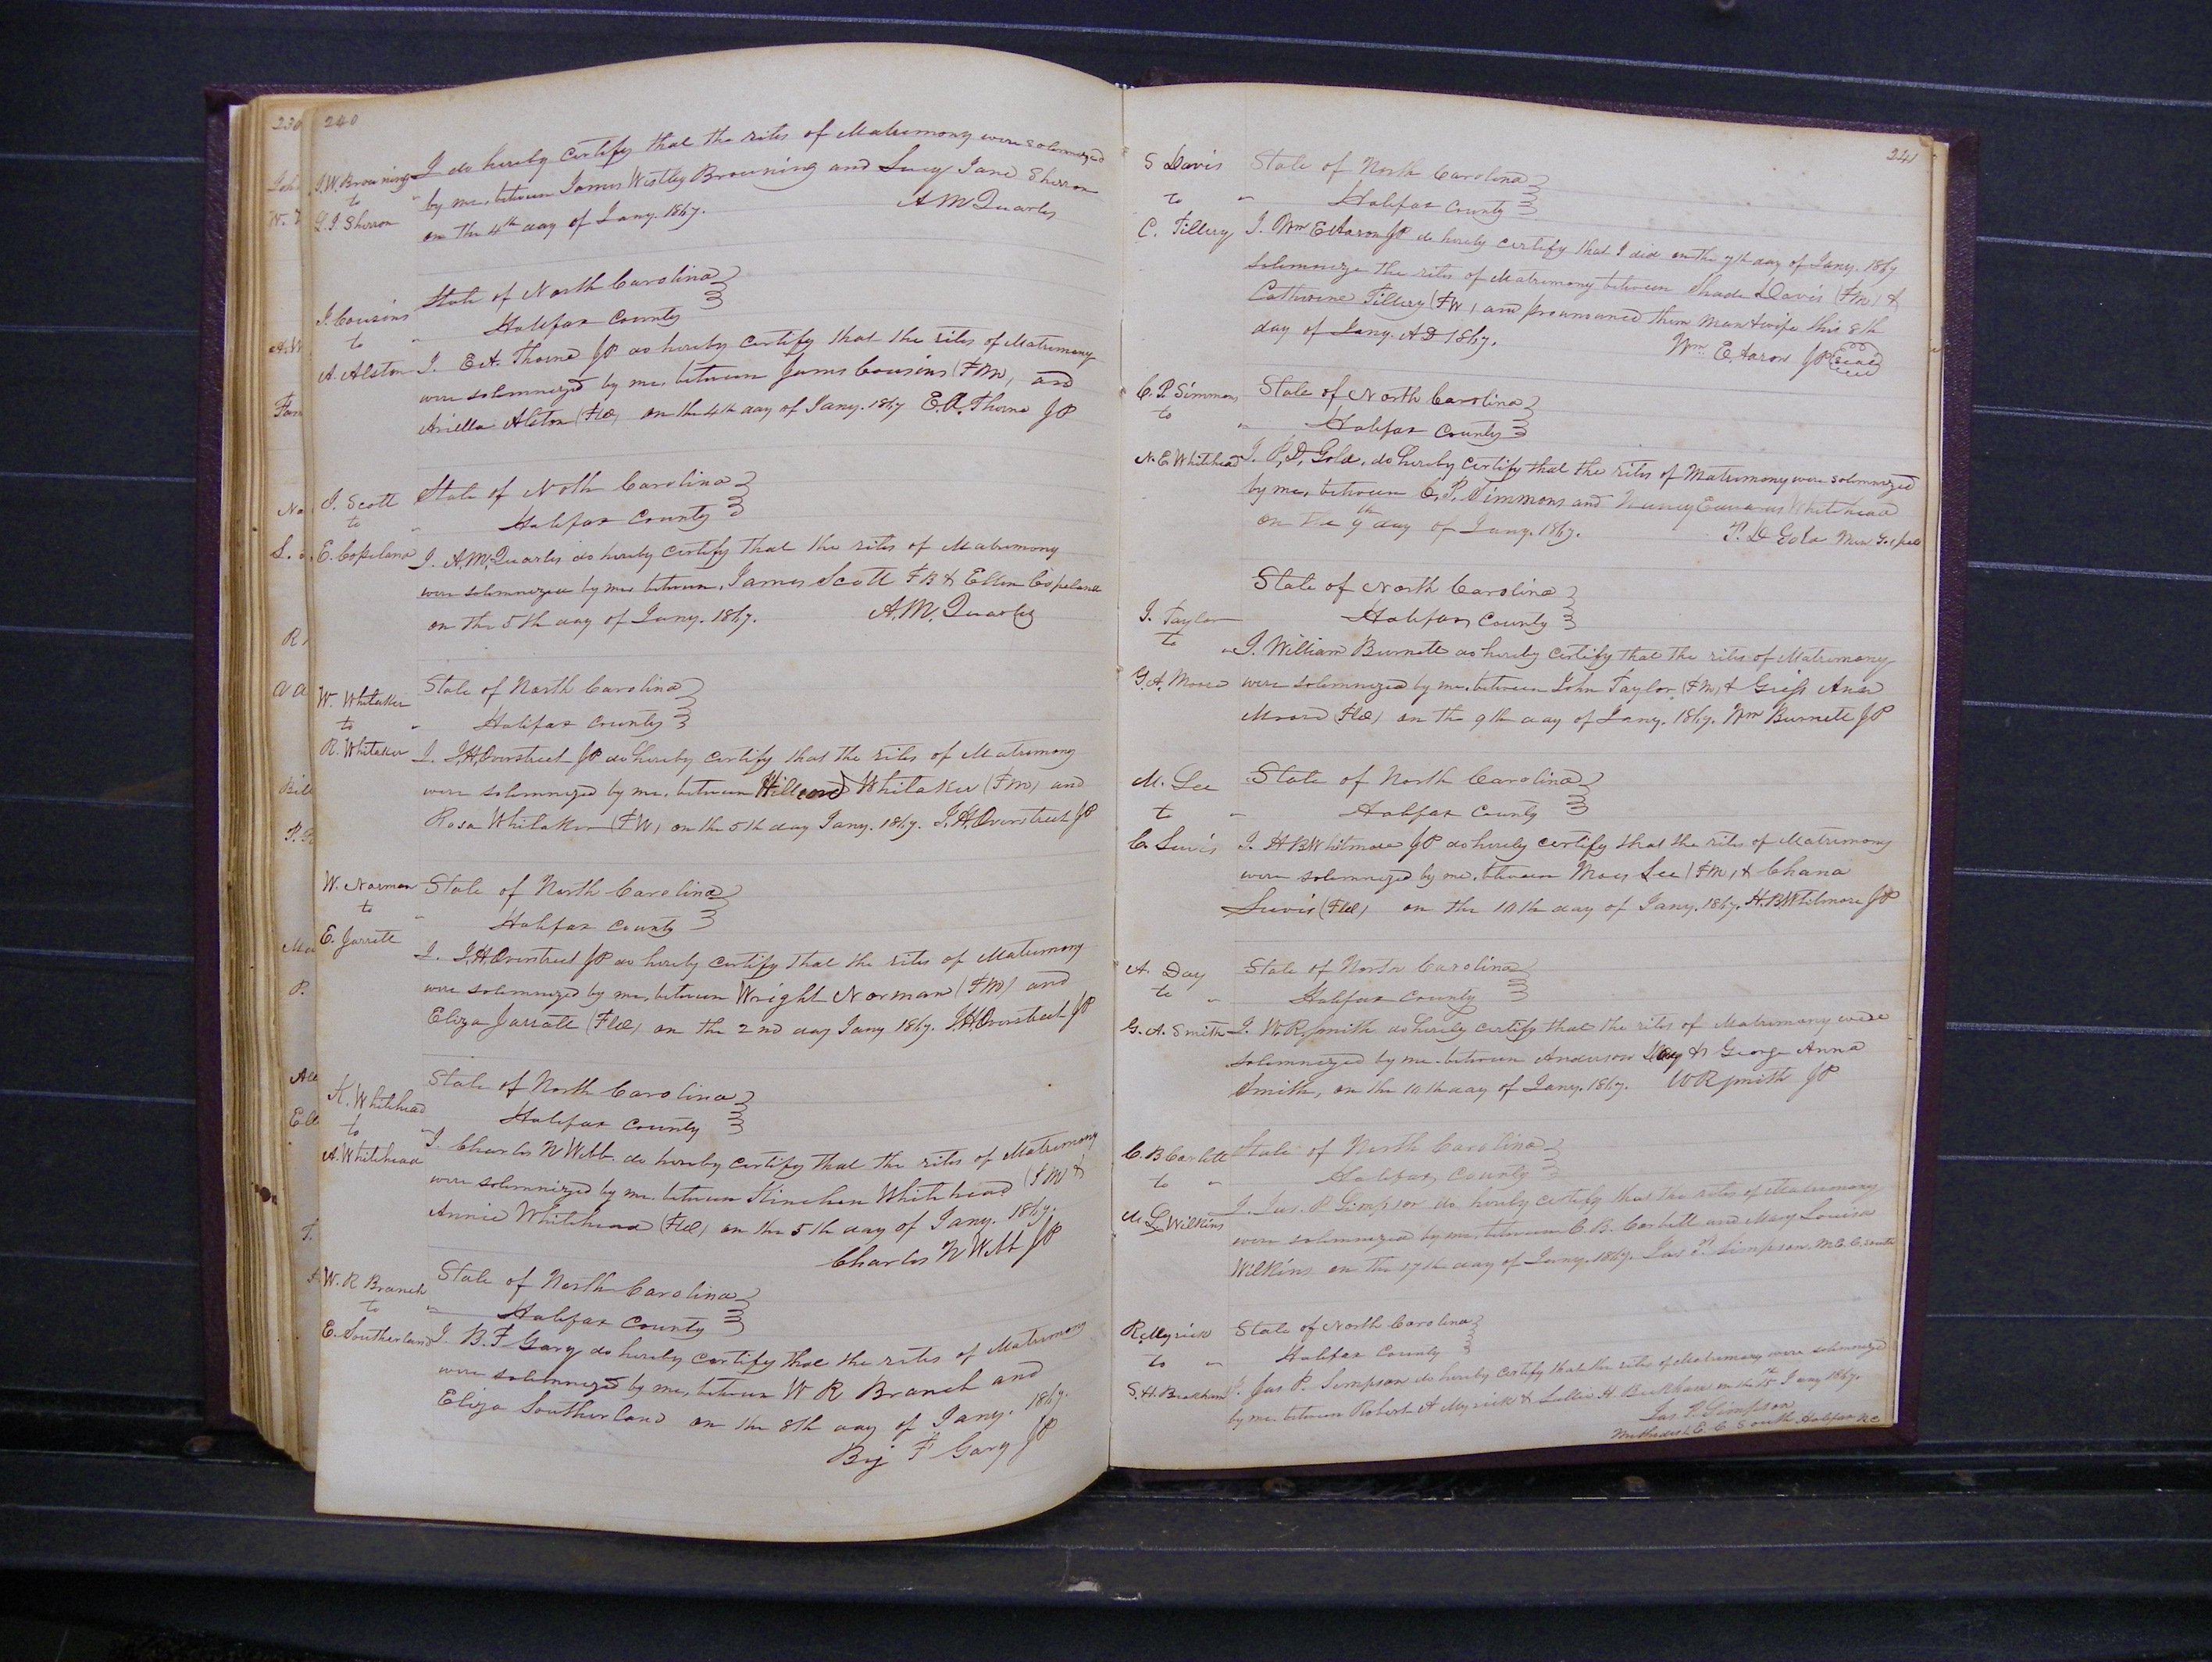 240
J. W. Browning
to
L. J. Sherron
I do hereby Certify that the rites of Matrimony were solemnized
by me, between James Westley Browning and Lucy Jane Sherron
on the 4th day of Jany. 1867.
A M Quarles
J. Cousins
to
A. Alston
State of North Carolina
Halifax County
I. E. A. Thorne JP do hereby certify that the rites of Matrimony
were solemnized by me, between James Cousins (FM) and
Ariella Alston (FW) on the 4th day of Jany. 1867 E. A. Thorne JP
J. Scott
to
E. Copeland
State of Noth Carolina
Halifax County
I. A. M. Quarles do hereby certify that the rites of Matrimony
were solemnized by me between, James Scott FB & Ellen Copeland
on the 5th day of Jany. 1867. A. M. Quarles
W. Whitaker
to
R. Whitaker
State of North Carolina
Halifax County
I. J. H. Overstreet JP do hereby certify that the rites of Matrimony
were solemnized by me, between Whitaker (FM) and
Rosa Whitaker (FW) on the 5th day Jany. 1867. J. H. Overstreet JP
W. Norman
to
E. Jarratt
State of North Carolina
Halifax County
I. J. H. Overstreet JP do hereby certify that the rites of Matrimony
were solemnized by me, between Wright Norman (FM) and
Eliza Jarratt (FW) on the 2nd day Jany 1867. J. H. Overstreet JP
K. Whitehead
to
A. Whitehead
State of North Carolina
Halifax County
I. Charles N Webb. do hereby certify that the rites of Matrimony
were solemnized by me. between Kinchen Whitehead (FM) &
Annie Whitehead (FW) on the 5th day of Jany. 1867.
Charles N Webb JP
W. R Branch
to
E. Southerland
State of North Carolina
Halifax County
I. B. F Gary do hereby certify that the rites of Matrimony
were solemnized by me, between W R Branch and
Eliza Southerland on the 8th day of Jany. 1867.
Bej F Gary JP
241
S Davis
to
C. Tillery
State of North Carolina
Halifax County
I. Wm E Aaron JP do hereby certify that I did on the 7th day of Jany. 1867
solemnize the rites of Matrimony between Shade Davis (FM) &
Catherine Tillery (FW) and pronounced them Man & wife this 8th
day of Jany. AD 1867.
Wm. E. Aaron JP Seal
C. P. Simmons
to
N. E Whitehead
State of North Carolina
Halifax County
I. P. D. Gold. do hereby certify that the rites of Matrimony were solemnized
by me, between C. P. Simmons and Nancy Whitehead
on the 9th day of Jany. 1867. P. D Gold Min Gospel
J. Taylor
to
G. A. Moore
State of North Carolina
Halifax County
I. William Burnett do hereby certify that the rites of Matrimony
were solemnized by me, between John Taylor (FM) & Ann
Moore (FW) on the 9th day of Jany. 1867. Wm Burnett JP
M. Lee
to
C. Lewis
State of North Carolina
Halifax County
I. H B Whitmore JP do hereby certify that the rites of Matrimony
were solemnized by me, between Moses Lee (FM) & Chana
Lewis (FW) on the 10th day of Jany. 1867. H. B Whitmore JP
A. Day
to
G. A. Smith
State of North Carolina
Halifax County
I. W. R. Smith do hereby certify that the rites of Matrimony were
solemnized by me. between Anderson Day & George Anna
Smith, on the 10th day of Jany. 1867. W R Smith JP
C. B Corbett
to
M. L Wilkins
State of North Carolina
Halifax County
I. Jas. P. Simpson do hereby certify that the rites of Matrimony
were solemnized by me, between C. B. Corbett and Mary Louisa
Wilkins on the 17th day of Jany. 1867. Jas P. Simpson M. E. C. South
R. Myrick
to
S. H. Bachham
State of North Carolina
Halifax County
I. Jas P. Simpson do hereby certify that the rites of Matrimony were solemnized
by me. between Robert A Myrick & Sallie H. on the 15th Jany 1867.
Jas P. Simpson
Methodist E. C. South Halifax N C